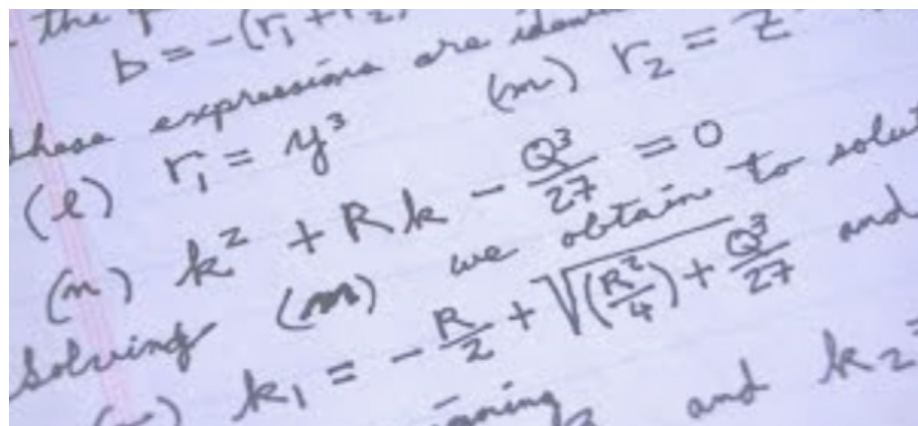 the
b = -(r₁ + r₂)
these expressions are
(l) r₁ = y³ (m) r₂ = z
(n) k² + Rk - Q³/27 = 0
Solving (m) we obtain to
k₁ = -R/2 + √((R²/4) + Q³/27 and
and k₂ =